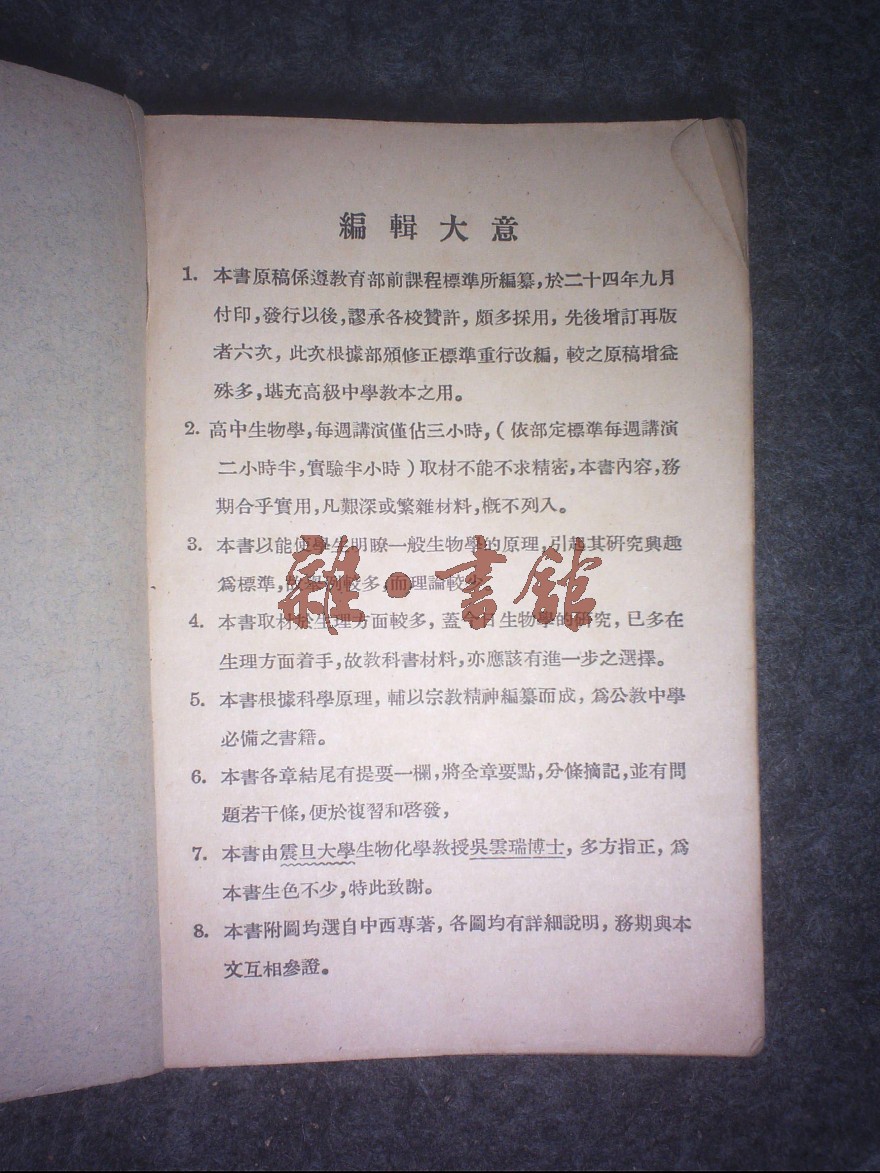 編輯大意
1. 本書原稿係遵教育部前課程標準所編纂,於二十四年九月
付印,發行以後,謬承各校贊許,頗多採用,先後增訂再版
者六次,此次根據部頒修正標準重行改編,較之原稿增益
殊多,堪充高級中學教本之用。
2. 高中生物學,每週講演僅佔三小時,(依部定標準每週講演
二小時半,實驗半小時)取材不能不求精密,本書內容,務
期合乎實用,凡艱深或繁雜材料,概不列入。
3. 本書以能使學生明瞭一般生物學的原理,引起其研究興趣
爲標準,故舉例較多,而理論較少。
4. 本書取材於生理方面較多,蓋今日生物學的研究,已多在
生理方面着手,故教科書材料,亦應該有進一步之選擇。
5. 本書根據科學原理,輔以宗教精神編纂而成,爲公教中學
必備之書籍。
6. 本書各章結尾有提要一欄,將全章要點,分條摘記,並有問
題若干條,便於複習和啓發,
7. 本書由震旦大學生物化學教授吳雲瑞博士,多方指正,爲
本書生色不少,特此致謝。
8. 本書附圖均選自中西專著,各圖均有詳細說明,務期與本
文互相參證。
雜·書館